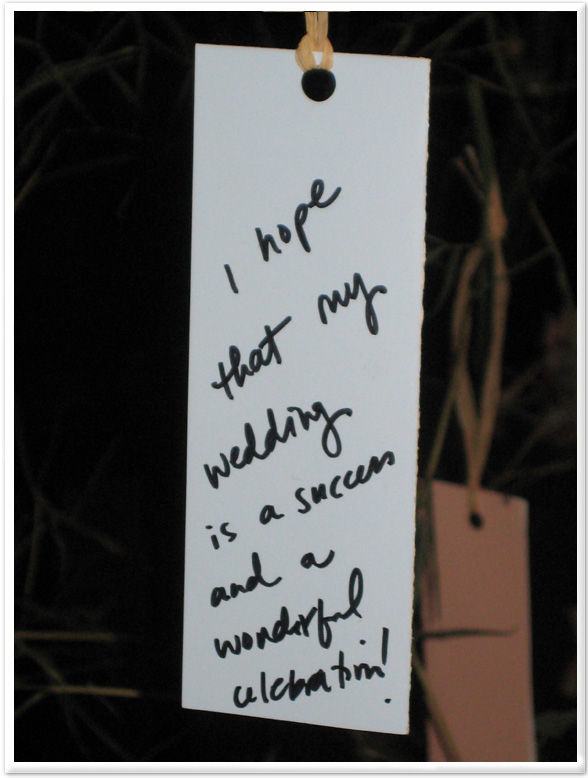 I hope
that my
wedding
is a success
and a
wonderful
celebration!